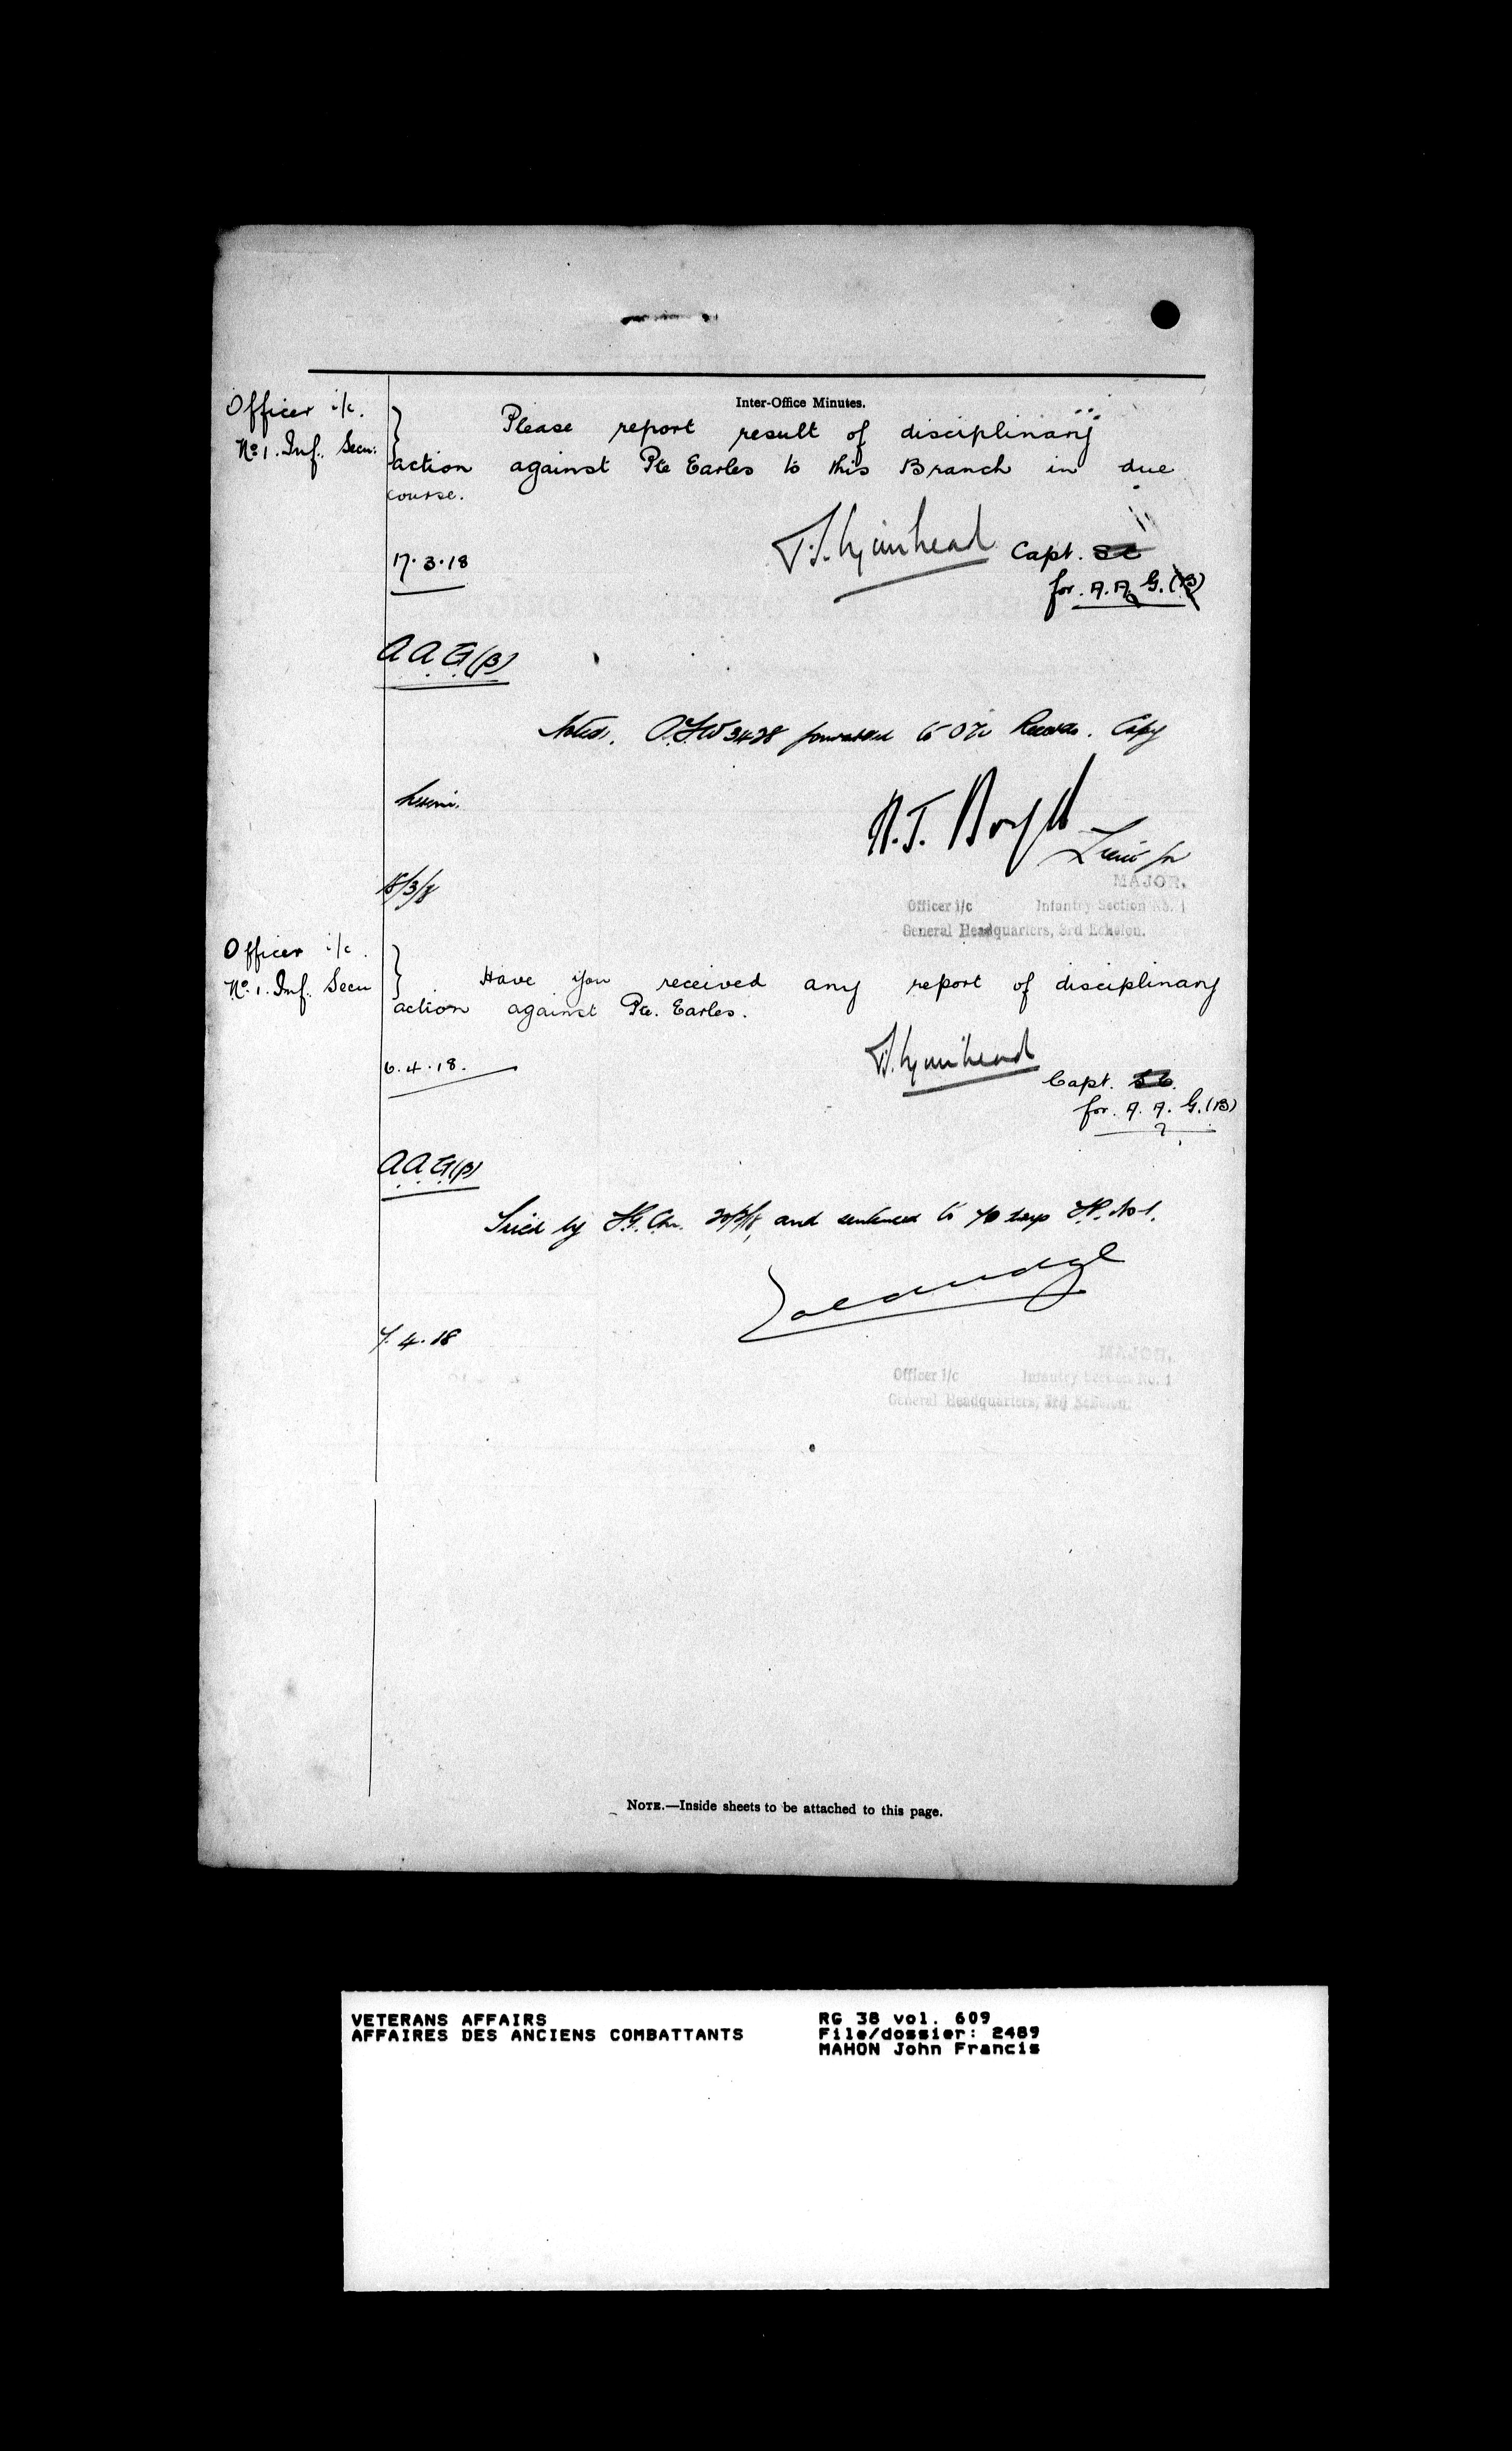 Inter-Office Minutes.
Officer i/c.
No 1. Inf. Secn:
Please report result of disciplinary
action against Pte Earles to this Branch in due
course.
Muirhead Capt.
17.3.18
for. A.A.G.(B)
A.A.G.(B)
Noted. A.F.W 3428 forwarded to O i/c Records. Copy
herein.
Lieut for
18/3/18
MAJOR.
Officer i/c Infantry Section No. 1
General Headquarters, 3rd Echelon.
Officer i/c.
No. 1. Inf. Secn
Have you received any report of disciplinary
action against Pte. Earles.
Muirhead
6.4.18.
Capt.
for. A. A. G.(B)
A.A.G.(B)
Tried by F.G.C.M. and sentenced to 70 days F.P. No 1.
7.4.18
MAJOR.
Officer i/c Infantry Section No. 1
General Headquarters, 3rd Echelon.
NOTE.—Inside sheets to be attached to this page.
VETERANS AFFAIRS RG 38 vol. 609
AFFAIRES DES ANCIENS COMBATTANTS File/dossier: 2489
MAHON John Francis